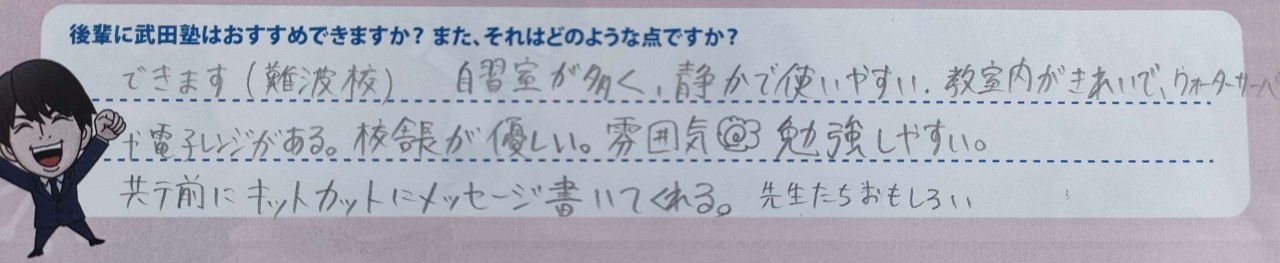 後輩に武田塾はおすすめできますか？また、それはどのような点ですか？
できます（難波校）　自習室が多く、静かで使いやすい。教室内がきれいで、ウォーターサーバ
や電子レンジがある。校舎長が優しい。雰囲気◎ 勉強しやすい。
共テ前にキットカットにメッセージ書いてくれる。先生たちおもしろい